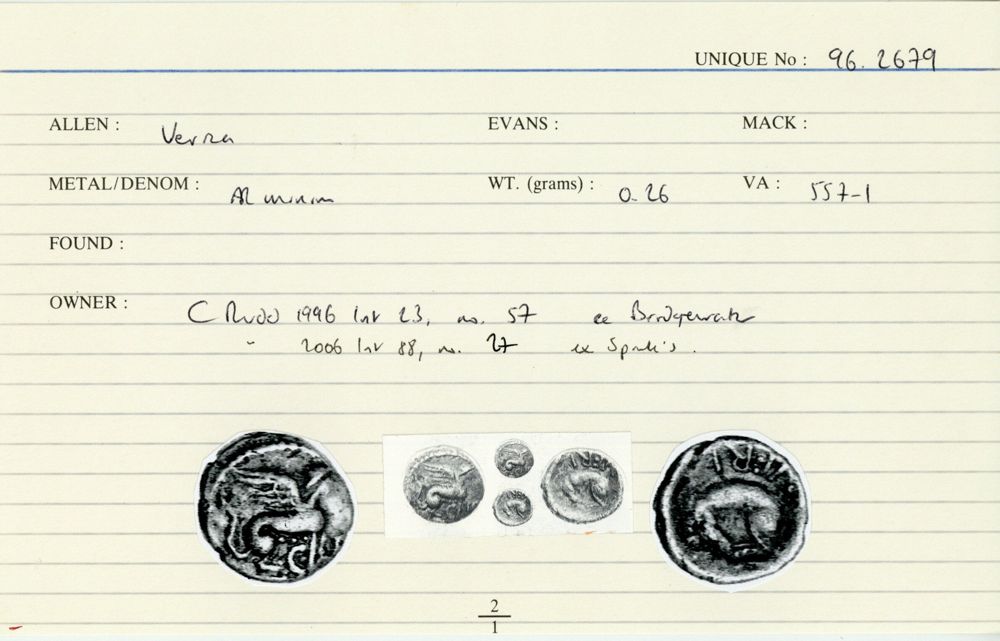 UNIQUE No : 96. 2679
ALLEN : Verica EVANS : MACK :
METAL/DENOM : AR minim WT. (grams) : 0.26 VA : 557-1
FOUND :
OWNER : C Rudd 1996 list 23, no. 57 ex Bridgewater
" 2006 list 88, no. 27 ex Spink's.
VERI
2
1